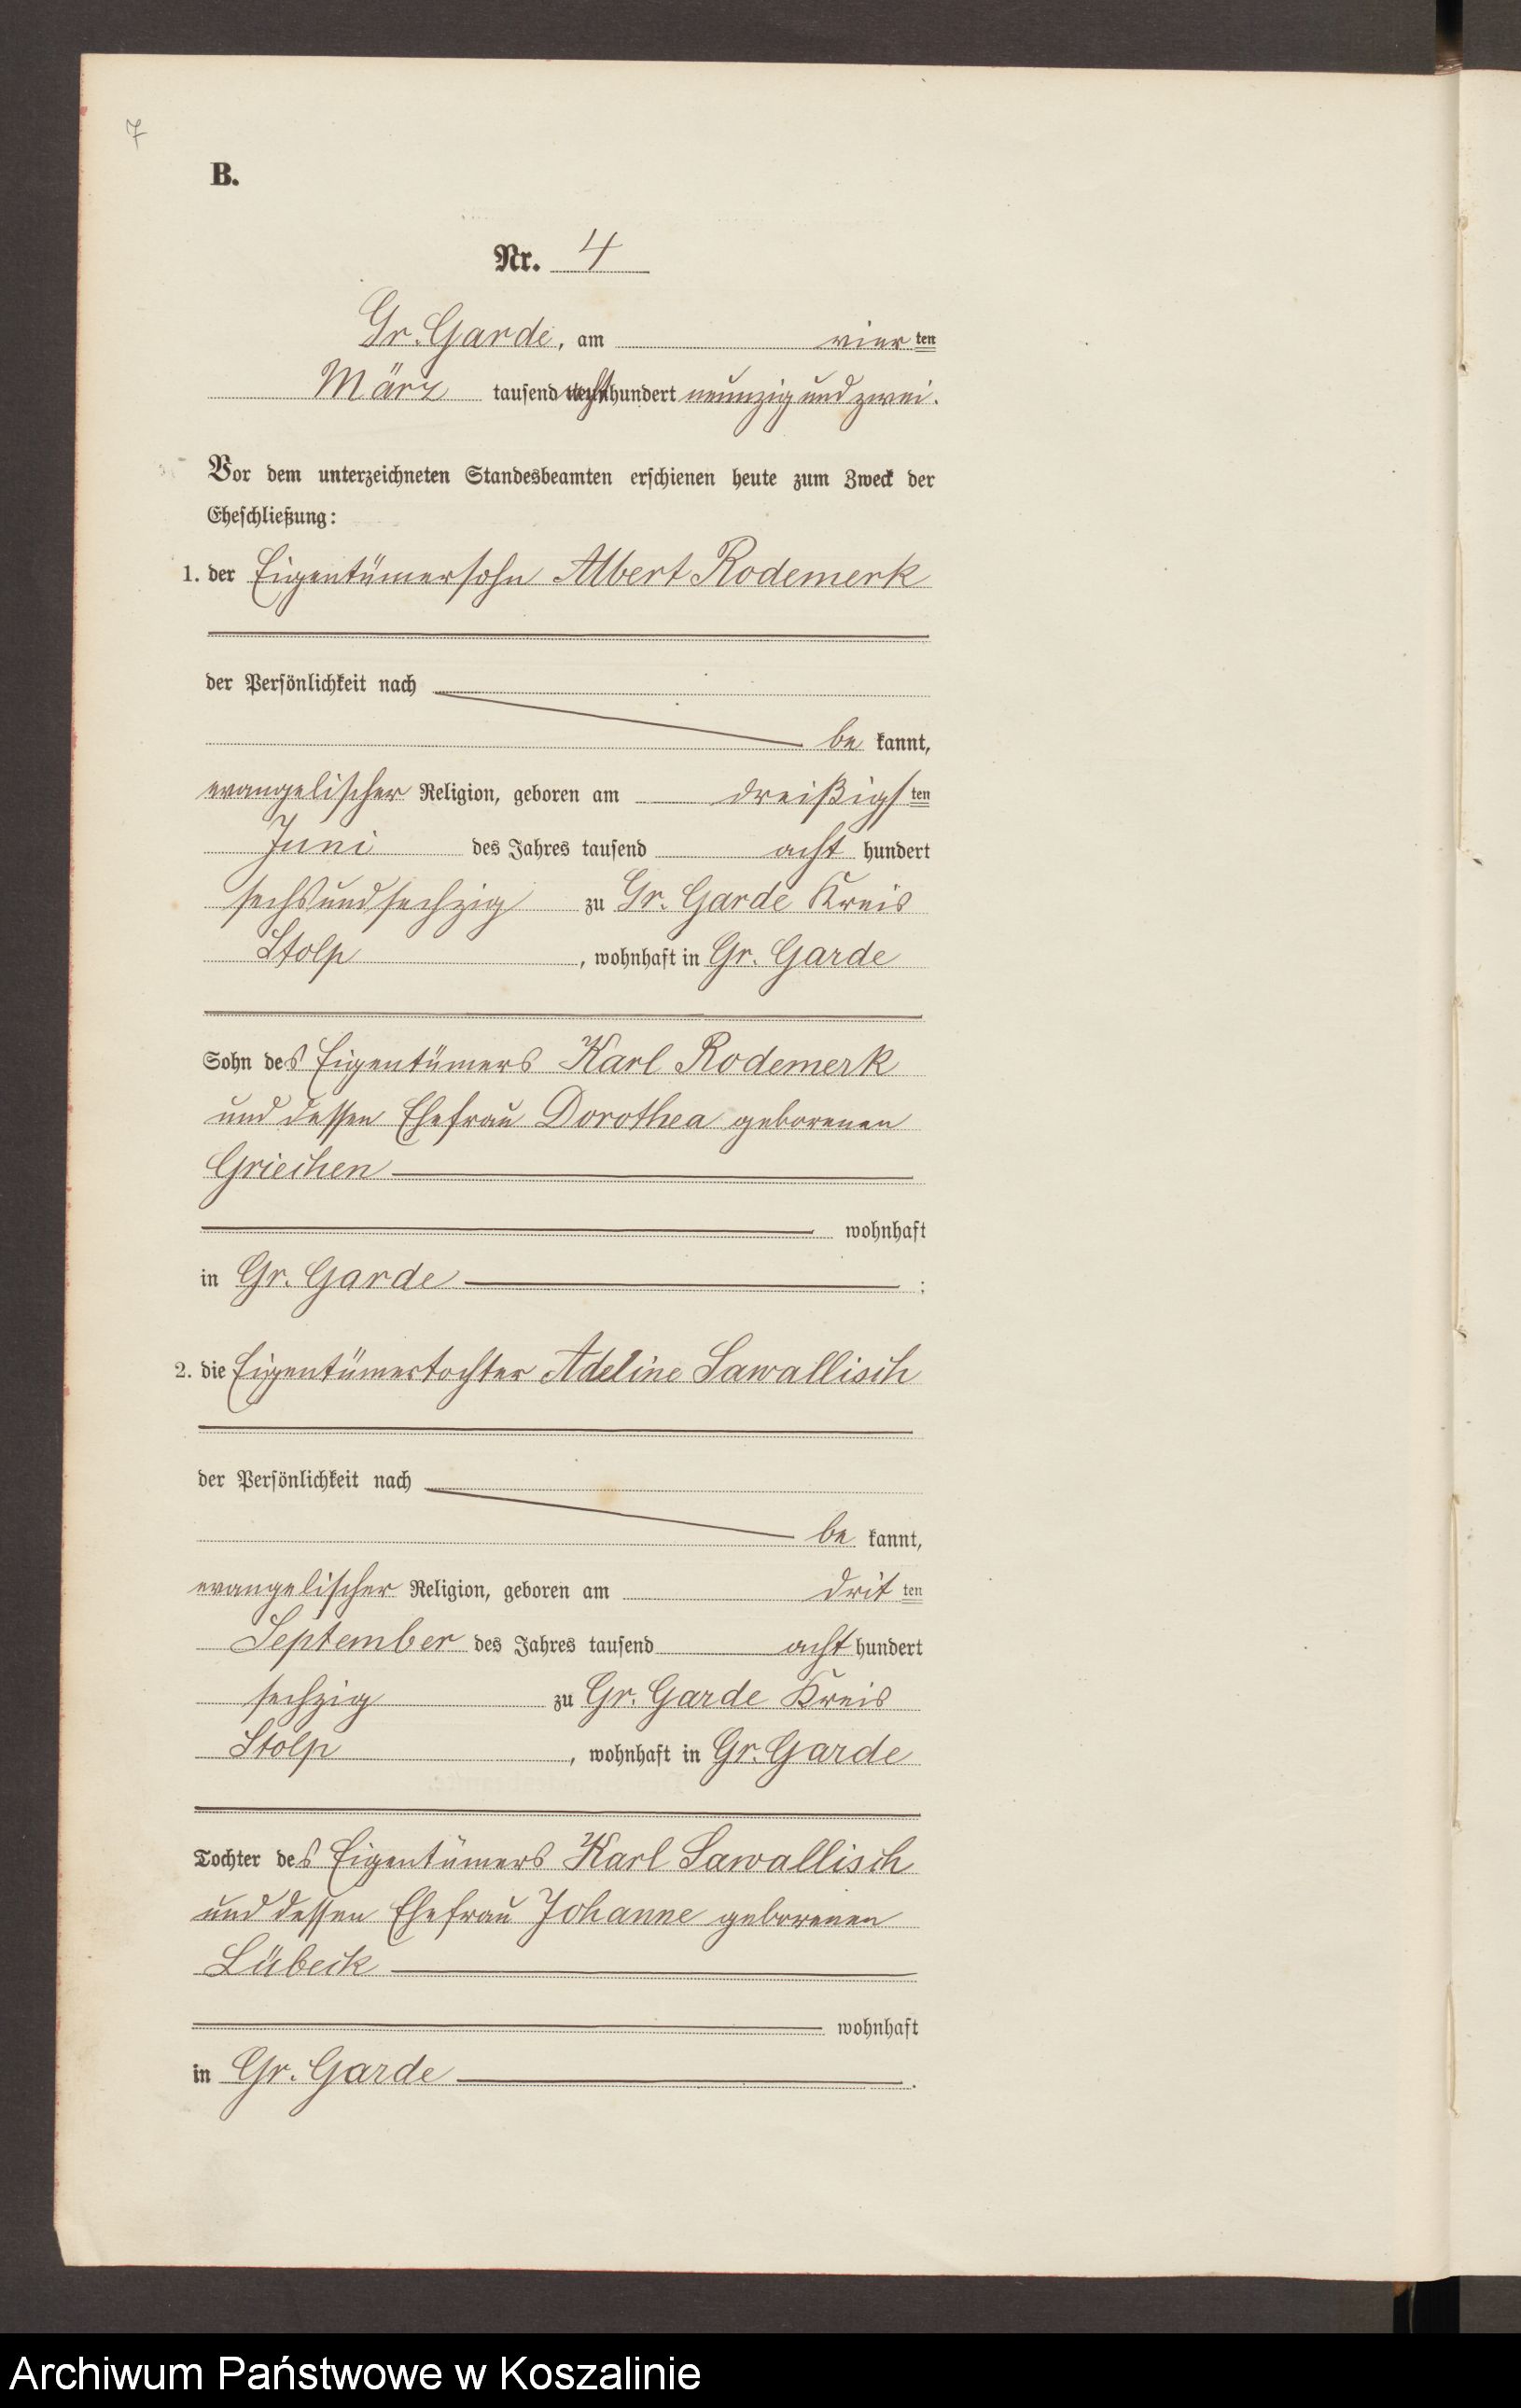 7
B.
Nr. 4
Gr. Garde, am vierten
März tausend achthundert neunzig und zwei.
Vor dem unterzeichneten Standesbeamten erschienen heute zum Zweck der
Eheschließung:
1. der Eigentümersohn Albert Rodemerk
der Persönlichkeit nach
be kannt,
evangelischer Religion, geboren am dreißigsten
Juni des Jahres tausend acht hundert
sechsundsechzig zu Gr. Garde Kreis
Stolp, wohnhaft in Gr. Garde
Sohn des Eigentümers Karl Rodemerk
und dessen Ehefrau Dorothea geborenen
Griechen
wohnhaft
in Gr. Garde ;
2. die Eigentümertochter Adeline Sawallisch
der Persönlichkeit nach
be kannt,
evangelischer Religion, geboren am dritten
September des Jahres tausend acht hundert
sechzig zu Gr. Garde Kreis
Stolp, wohnhaft in Gr. Garde
Tochter des Eigentümers Karl Sawallisch
und dessen Ehefrau Johanne geborenen
Lübeck
wohnhaft
in Gr. Garde .
Archiwum Państwowe w Koszalinie